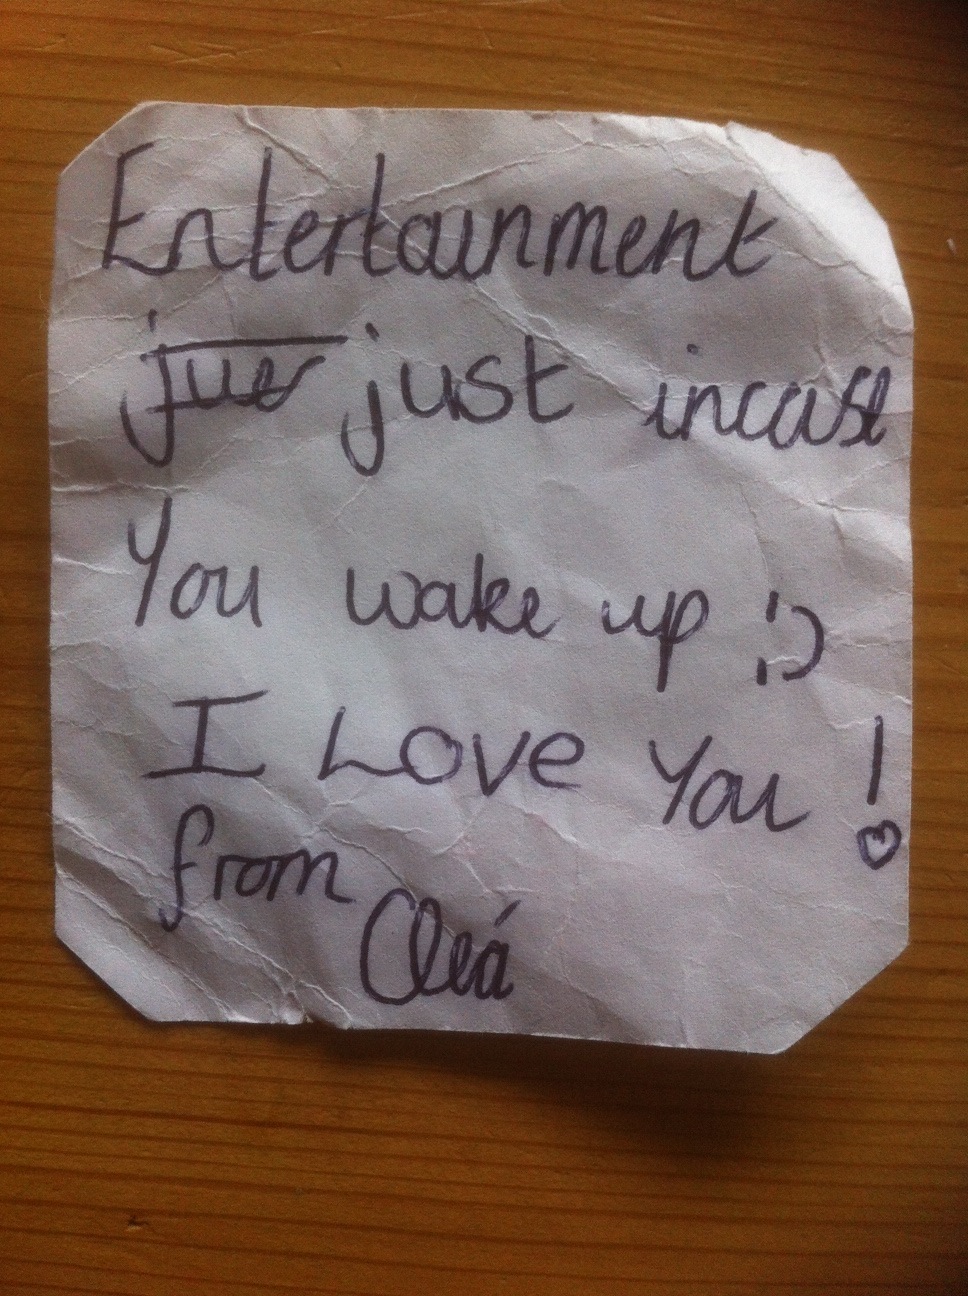 Entertainment
just incase
You wake up ;)
I Love You !
from
Cleá